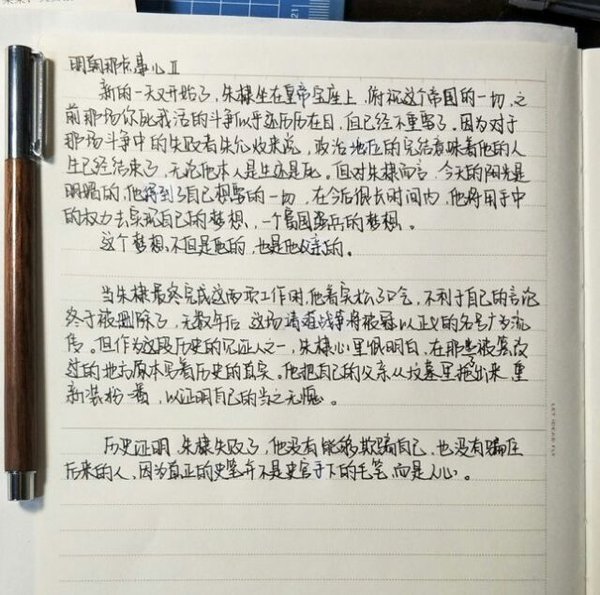 明朝那些事儿 II
新的一天又开始了，朱棣坐在皇帝宝座上，俯视这个帝国的一切，之
前那场你死我活的斗争似乎还历历在目，但已经不重要了。因为对于
那场斗争中的失败者朱允炆来说，政治地位的完结意味着他的人
生已经结束了，无论他本人是生还是死。但对朱棣而言，今天的阳光是
明媚的，他得到了自己想要的一切，在今后很长时间内，他将用手中
的权力去实现自己的梦想，一个富国强兵的梦想。
这个梦想不但是他的，也是他父亲的。
当朱棣最终完成这两项工作时，他着实松了口气，不利于自己的言论
终于被删除了，无数年后 这场靖难战争将被冠以正义的名号广为流
传。但作为这段历史的见证人之一，朱棣心里很明白，在那些被篡改
过的地方原本写着历史的真实。他把自己的父亲从坟墓里拖了出来 重
新装扮一番，以证明自己的当之无愧。
历史证明，朱棣失败了，他没有能够欺骗自己，也没有骗住
后来的人，因为真正的史笔并不是史官手下的毛笔，而是人心。